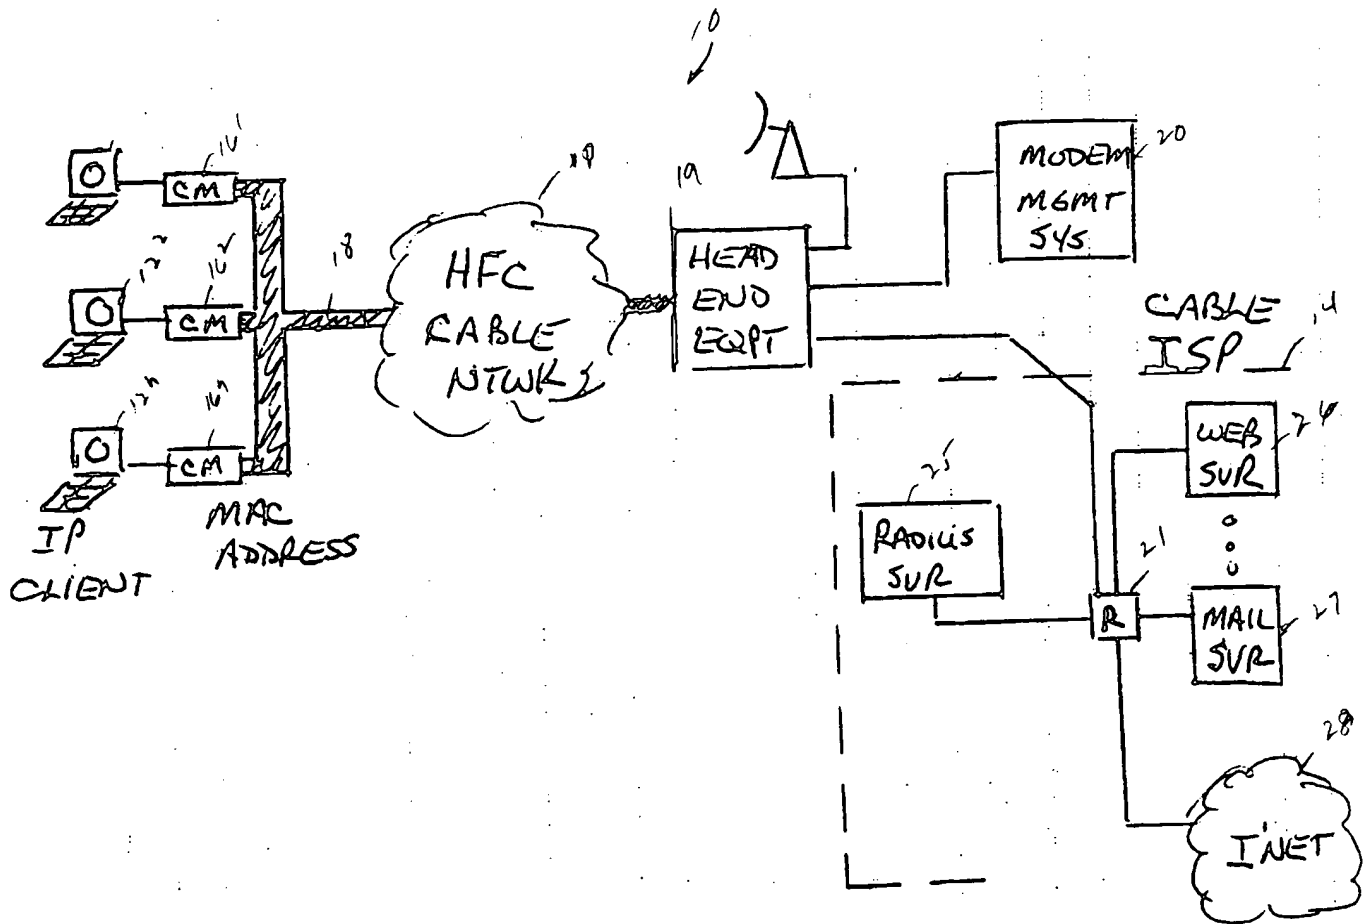 10
16¹
CM
12²
16²
CM
12ⁿ
16ⁿ
CM
IP
CLIENT
MAC
ADDRESS
18
HFC
CABLE
NTWK
19
HEAD
END
EQPT
MODEM
MGMT
SYS
20
CABLE
ISP
14
25
RADIUS
SVR
WEB
SVR
21
R
MAIL
SVR
27
28
I'NET